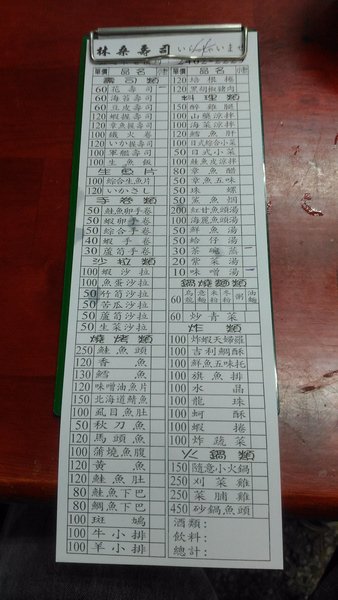 林桑壽司 いらっしゃいませ
單價 品名
壽司類
60 花壽司
60 海苔壽司
60 豆皮壽司
120 蝦握壽司
120 章魚握壽司
100 鐵火卷
120 いか握壽司
100 軍艦壽司
100 生魚飯
生魚片
100 綜合生魚片
120 いかさし
手卷類
50 鮭魚卵手卷
50 蝦卵手卷
50 綜合手卷
40 蝦手卷
30 蘆筍手卷
沙拉類
100 蝦沙拉
100 魚蛋沙拉
50 竹筍沙拉
50 苦瓜沙拉
50 蘆筍沙拉
50 生菜沙拉
燒烤類
250 鮭魚頭
120 香魚
30 鱈魚
120 味噌油魚片
150 北海道鯖魚
100 虱目魚肚
50 秋刀魚
120 馬頭魚
100 蒲燒魚腹
120 黃魚
120 鮭魚肚
80 鮭魚下巴
80 鯛魚下巴
100 斑鳩
100 牛小排
100 羊小排
單價 品名
120 培根捲
120 黑胡椒豬肉
料理類
100 醉雞腿
100 山藥涼拌
100 海菜涼拌
120 鱈魚肝
100 日式綜合小菜
50 日式小菜
100 鮭魚皮涼拌
80 章魚醋
50 章魚五味
50 珠螺
50 菜魚烟
200 紅甘魚頭湯
100 海麗魚頭湯
50 鮮魚湯
50 蛤仔湯
30 茶碗蒸
20 紫菜湯
10 味噌湯
鍋燒麵類
60 烏龍 意麵 米粉 冬粉 粥 油麵
60 炒青菜
炸類
100 炸蝦天婦羅
100 吉利鯛酥
100 鮮魚五味托
100 旗魚排
100 水晶
100 龍珠
100 蚵酥
100 蝦捲
100 炸蔬菜
火鍋類
150 隨意小火鍋
250 刈菜雞
250 菜脯雞
450 砂鍋魚頭
酒類:
飲料:
總計: